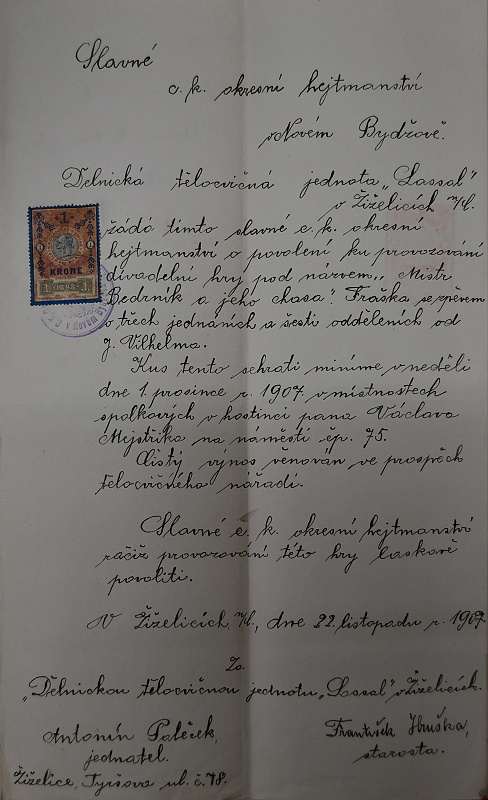 Slavné
c. k. okresní hejtmanství
v Novém Bydžově.
Dělnická tělocvičná jednota „Lassal"
v Žiželicích n/C.
žádá tímto slavné c. k. okresní
hejtmanství o povolení ku provozování
divadelní hry pod názvem „Mistr
Bedrník a jeho chasa". Fraška se zpěvem
o třech jednáních a šesti odděleních od
J. Vilhelma.
Kus tento sehrati míníme v neděli
dne 1. prosince r. 1907. v místnostech
spolkových v hostinci pana Václava
Mejstříka na náměstí čp. 75.
Čistý výnos věnován ve prospěch
tělocvičného nářadí.
Slavné c. k. okresní hejtmanství
račiž provozování této hry laskavě
povoliti.
V Žiželicích n/C., dne 22. listopadu r. 1907.
Za
„Dělnickou tělocvičnou jednotu „Lassal" v Žiželicích.
Antonín Paleček,
jednatel.
Žiželice, Tyršova ul. č. 78.
František Hruška,
starosta.
1
KRONE
1 1898 1